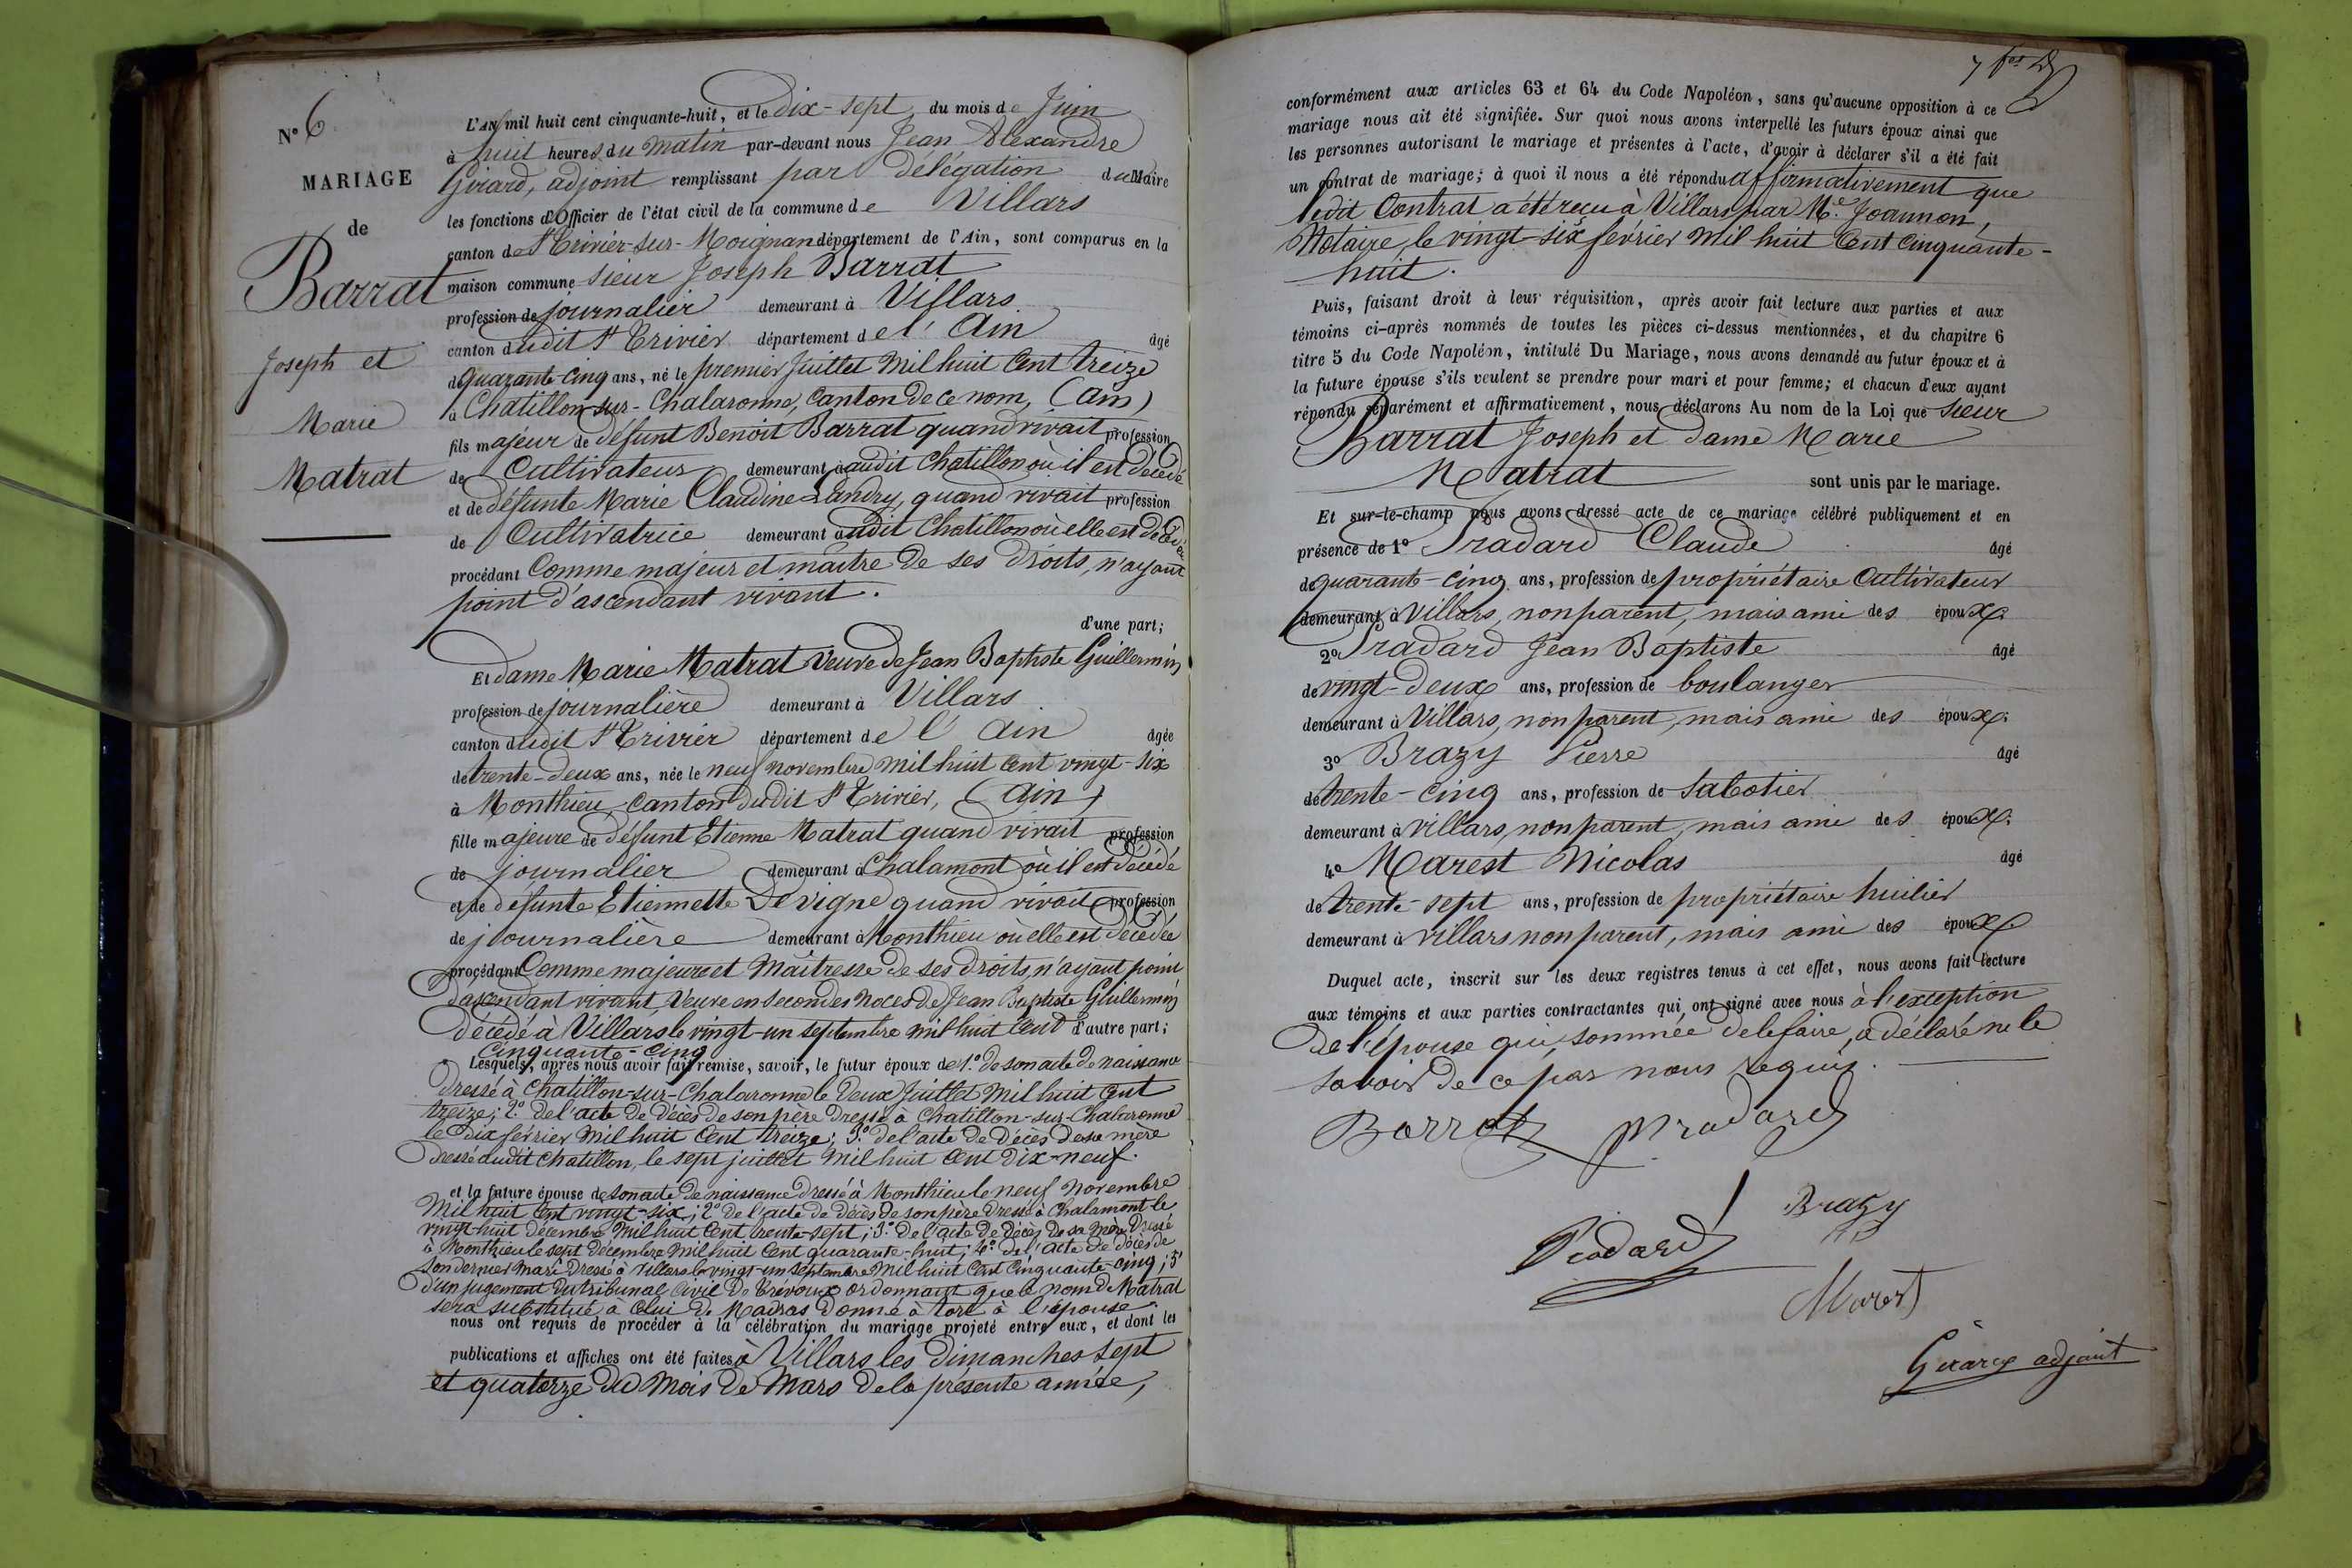 N° 6
MARIAGE
de
Barrat
Joseph et
Marie
Matrat
L'AN mil huit cent cinquante-huit, et le Dix-sept du mois de Juin
à huit heures du matin par-devant nous Jean Alexandre
Girard, adjoint remplissant par délégation du Maire
les fonctions d'Officier de l'état civil de la commune de Villars
canton de St Trivier-sur-Moignan département de l'Ain, sont comparus en la
maison commune sieur Joseph Barrat
profession de journalier demeurant à Villars
canton dudit St Trivier département de l'Ain âgé
de quarante-cinq ans, né le premier Juillet mil huit cent treize
à Chatillon-sur-Chalaronne, canton de ce nom, (Ain)
fils majeur de défunt Benoit Barrat quand vivait profession
de Cultivateur demeurant audit Chatillon où il est décédé
et de défunte Marie Claudine Landry, quand vivait profession
de Cultivatrice demeurant audit Chatillon où elle est décédée
procédant Comme majeur et maître de ses droits, n'ayant
point d'ascendant vivant.
d'une part;
Et dame Marie Matrat veuve de Jean Baptiste Guillermin
profession de journalière demeurant à Villars
canton dudit St Trivier département de l'Ain âgée
de trente-deux ans, née le neuf novembre mil huit cent vingt-six
à Monthieu, canton dudit St Trivier, (Ain)
fille majeure de défunt Etienne Matrat quand vivait profession
de journalier demeurant à Chalamont où il est décédé
et de défunte Etiennette Devigne quand vivait profession
de journalière demeurant à Monthieu où elle est décédée
procédant Comme majeure et maîtresse de ses droits, n'ayant point
d'ascendant vivant, veuve en secondes noces de Jean Baptiste Guillermin
décédé à Villars le vingt-un septembre mil huit cent d'autre part;
cinquante-cinq
Lesquels, après nous avoir fait remise, savoir, le futur époux de 1° de son acte de naissance
dressé à Chatillon-sur-Chalaronne le deux Juillet mil huit cent
treize; 2° de l'acte de décès de son père dressé à Chatillon-sur-Chalaronne
le dix février mil huit cent treize; 3° de l'acte de décès de sa mère
dressé audit Chatillon, le sept juillet mil huit cent dix-neuf.
et la future épouse de son acte de naissance dressé à Monthieu le neuf novembre
mil huit cent vingt-six; 2° de l'acte de décès de son père dressé à Chalamont le
vingt-huit décembre mil huit cent trente-sept; 3° de l'acte de décès de sa mère dressé
à Monthieu le sept décembre mil huit cent quarante-huit; 4° de l'acte de décès de
son dernier mari dressé à Villars le vingt-un septembre mil huit cent cinquante-cinq; 5°
d'un jugement du tribunal civil de Trévoux ordonnant que le nom de Matrat
sera substitué à celui de Madras donné à tort à l'épouse.
nous ont requis de procéder à la célébration du mariage projeté entre eux, et dont les
publications et affiches ont été faites à Villars les dimanches sept
et quatorze du mois de Mars de la présente année,
conformément aux articles 63 et 64 du Code Napoléon, sans qu'aucune opposition à ce
mariage nous ait été signifiée. Sur quoi nous avons interpellé les futurs époux ainsi que
les personnes autorisant le mariage et présentes à l'acte, d'avoir à déclarer s'il a été fait
un contrat de mariage; à quoi il nous a été répondu affirmativement que
ledit Contrat a été reçu à Villars par Me Joannon,
Notaire, le vingt-six février mil huit cent cinquante-
huit.
Puis, faisant droit à leur réquisition, après avoir fait lecture aux parties et aux
témoins ci-après nommés de toutes les pièces ci-dessus mentionnées, et du chapitre 6
titre 5 du Code Napoléon, intitulé Du Mariage, nous avons demandé au futur époux et à
la future épouse s'ils veulent se prendre pour mari et pour femme; et chacun d'eux ayant
répondu séparément et affirmativement, nous déclarons Au nom de la Loi que sieur
Barrat Joseph et dame Marie
Matrat sont unis par le mariage.
Et sur-le-champ nous avons dressé acte de ce mariage célébré publiquement et en
présence de 1° Pradard Claude âgé
de quarante-cinq ans, profession de propriétaire Cultivateur
demeurant à Villars, non parent, mais ami des époux;
2° Pradard Jean Baptiste âgé
de vingt-deux ans, profession de boulanger
demeurant à Villars, non parent, mais ami des époux;
3° Brazy Pierre âgé
de trente-cinq ans, profession de Sabotier
demeurant à Villars, non parent, mais ami des époux;
4° Marest Nicolas âgé
de trente-sept ans, profession de propriétaire huilier
demeurant à Villars non parent, mais ami des époux
Duquel acte, inscrit sur les deux registres tenus à cet effet, nous avons fait lecture
aux témoins et aux parties contractantes qui ont signé avec nous à l'exception
de l'épouse qui, sommée de le faire, a déclaré ne le
savoir de ce par nous requis.
Barrat Pradard
Pradard Brazy
Marest
Girard adjoint